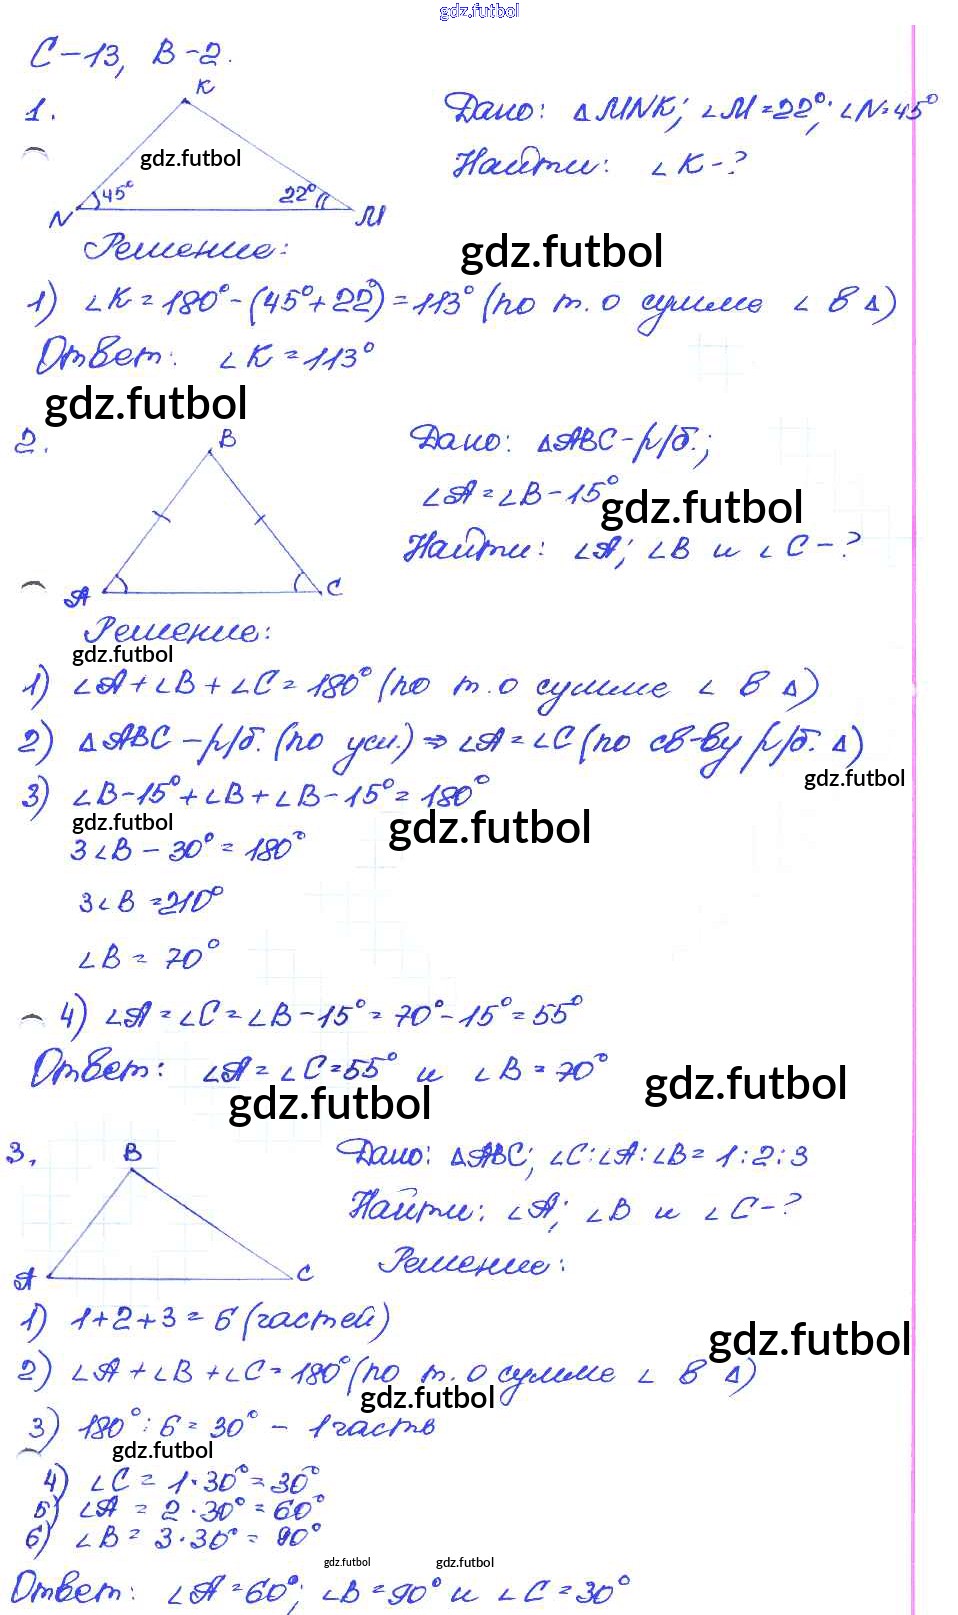 gdz.futbol
С-13, В-2.
1.
K
gdz.futbol
45°
22°
N
M
Дано: △MNK; ∠M=22°; ∠N=45°
Найти: ∠K-?
Решение:
gdz.futbol
1) ∠K=180°-(45°+22°)=113° (по т. о сумме ∠ в △)
Ответ: ∠K=113°
gdz.futbol
2.
B
A
C
Дано: △ABC-р/б.;
∠A=∠B-15°
gdz.futbol
Найти: ∠A; ∠B и ∠C-?
Решение:
gdz.futbol
1) ∠A+∠B+∠C=180° (по т. о сумме ∠ в △)
2) △ABC-р/б. (по усл.) ⇒ ∠A=∠C (по св-ву р/б. △)
gdz.futbol
3) ∠B-15°+∠B+∠B-15°=180°
gdz.futbol
gdz.futbol
3∠B-30°=180°
3∠B=210°
∠B=70°
4) ∠A=∠C=∠B-15°=70°-15°=55°
Ответ: ∠A=∠C=55° и ∠B=70°
gdz.futbol
gdz.futbol
3.
B
A
C
Дано: △ABC; ∠C:∠A:∠B=1:2:3
Найти: ∠A; ∠B и ∠C-?
Решение:
1) 1+2+3=6 (частей)
gdz.futbol
2) ∠A+∠B+∠C=180° (по т. о сумме ∠ в △)
gdz.futbol
3) 180°:6=30° - 1 часть
gdz.futbol
4) ∠C=1·30°=30°
5) ∠A=2·30°=60°
6) ∠B=3·30°=90°
gdz.futbol
gdz.futbol
Ответ: ∠A=60°; ∠B=90° и ∠C=30°